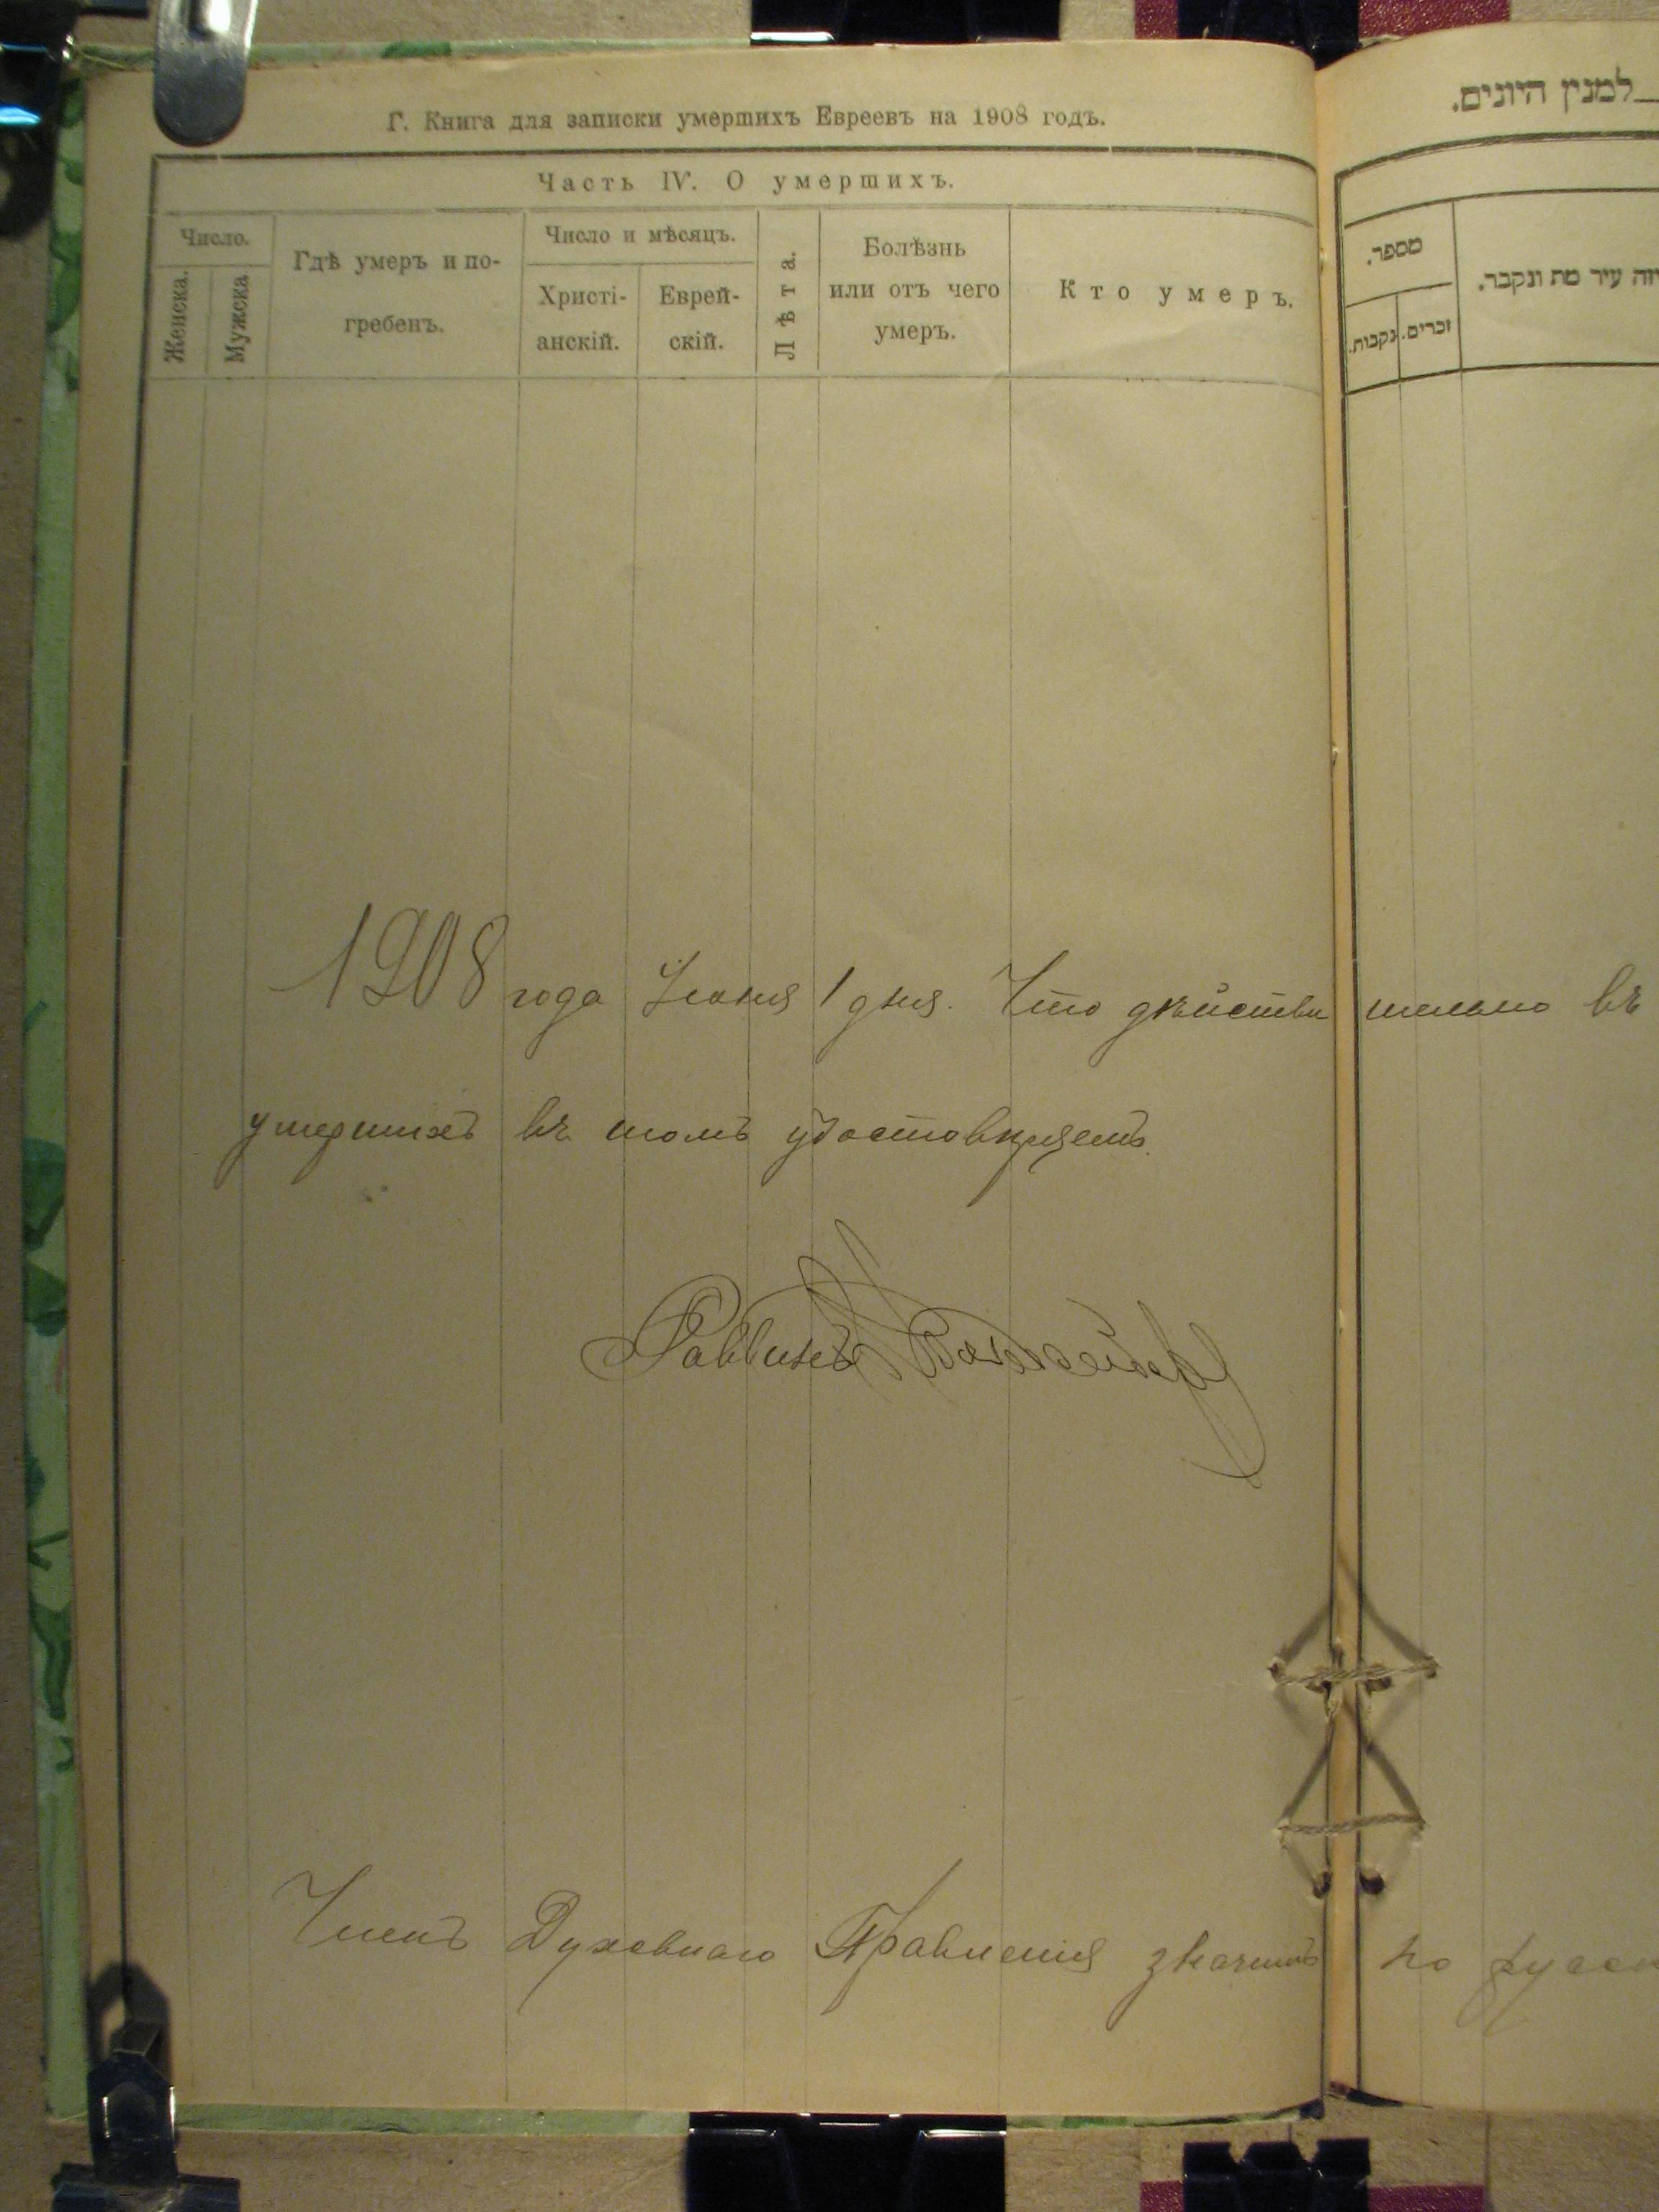 Г. Книга для записки умершихъ Евреевъ на 1908 годъ.
למנין היונים.
Часть IV. О умершихъ.
Число.
Женска.
Мужска
Гдѣ умеръ и по-
гребенъ.
Число и мѣсяцъ.
Христі-
анскій.
Еврей-
скій.
Лѣта.
Болѣзнь
или отъ чего
умеръ.
Кто умеръ.
מספר.
נקבות.
זכרים.
עיר מת ונקבר.
1908 года Іюня 1 дня. Что дѣйствительно въ
умершихъ въ томъ удостовѣряемъ.
Раввинъ
Членъ Духовнаго Правленія значитъ по русск